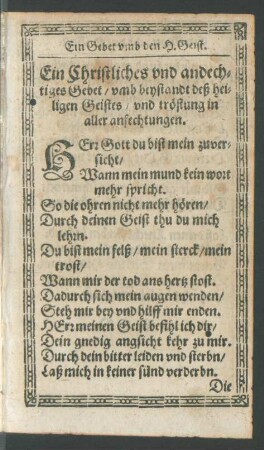 Ein Gebet vmb den H. Geist.
Ein Christliches vnd andech-
tiges Gebet / vmb beystandt deß hei-
ligen Geistes / vnd tröstung in
aller anfechtungen.
HErr Gott du bist mein zuver-
sicht /
Wann mein mund kein wort
mehr spricht.
So die ohren nicht mehr hören /
Durch deinen Geist thu du mich
lehrn.
Du bist mein felß / mein sterck / mein
trost /
Wann mir der tod ans hertz stost.
Dadurch sich mein augen wenden /
Steh mir bey vnd hilff mir enden.
HErr meinen Geist befihl ich dir /
Dein gnedig angsicht kehr zu mir.
Durch dein bitter leiden vnd sterbn /
Laß mich in keiner sünd verderbn.
Die